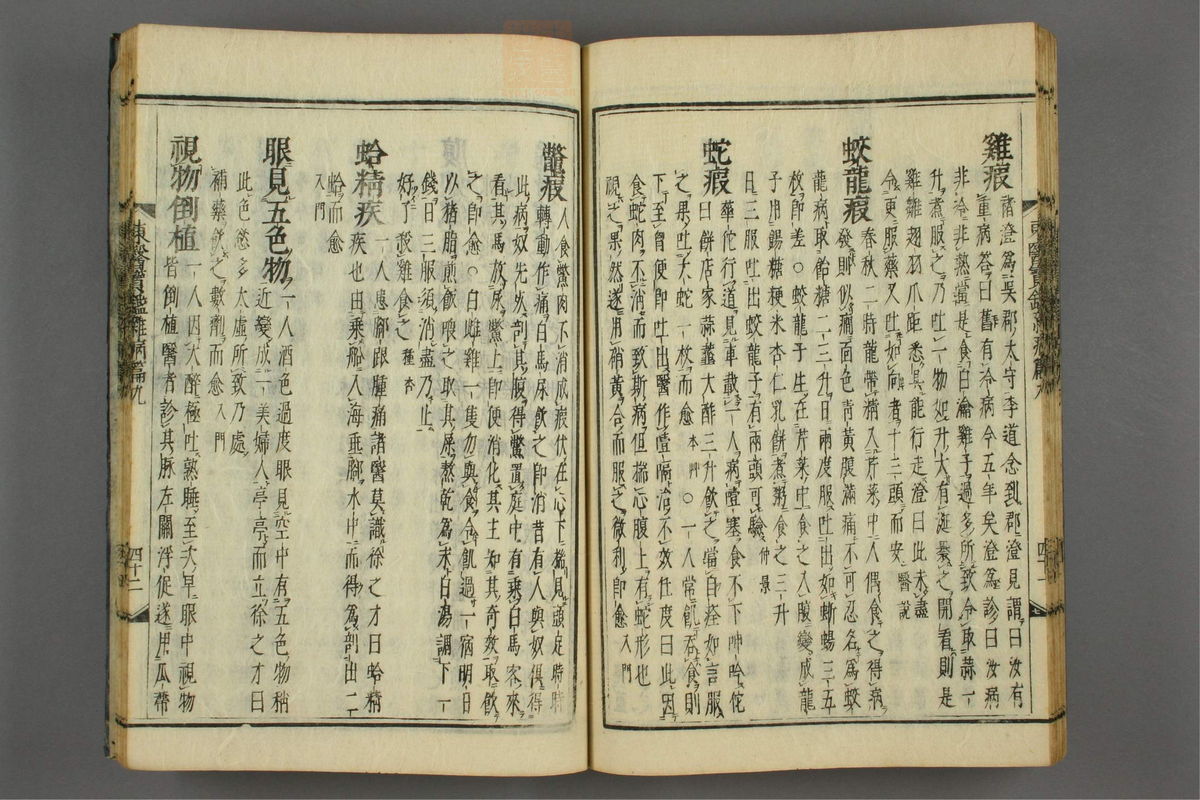 雞瘕 諸澄爲吳郡太守李道念到郡澄見謂曰汝有
重病荅曰舊有冷病今五年矣澄爲診曰汝病
非冷非熱當是食白瀹雞子過多所致令取蒜一
升煮服之乃吐一物如升大有涎裹之開看則是
雞雛翅羽爪距悉具能行走澄曰此未盡
令更服藥又吐如向者十三頭而安 醫說
蛟龍瘕 春秋二時龍帶精入芹菜中人偶食之得病
發則似癎面色靑黃腹滿痛不可忍名爲蛟
龍病取飴糖二三升日兩度服吐出如蜥蜴三五
枚卽差○蛟龍子生在芹菜中食之入腹變成龍
子用餳糖粳米杏仁乳餠煮粥食之三升
日三服吐出蛟龍子有兩頭可驗 仲景
蛇瘕 華佗行道見車載一人病噎塞食不下呻吟佗
曰餠店家蒜虀大酢三升飮之當自痊如言服
之果吐大蛇一枚而愈 本艸 ○一人常飢呑食則
下至胷便卽吐出醫作噎膈治不效任度曰此因
食蛇肉不消而致斯病但揣心腹上有蛇形也
視之果然遂用硝黃合而服之微利卽愈 入門
鱉瘕 人食鱉肉不消成瘕伏在心下揣見頭足時時
轉動作痛白馬尿飮之卽消昔有人與奴俱得
此病奴先死剖其腹得鱉置庭中有乘白馬客來
看其馬放尿鱉上卽便消化其主知其奇效取飮
之卽愈○白雌雞一隻勿與食令飢過一宿明日
以猪脂煎飯喂之取其屎熬乾爲末白湯調下一
錢日三服須消盡乃止
好了殺雞食之 種杏
蛤精疾 一人患脚跟腫痛諸醫莫識徐之才曰蛤精
疾也由乘船入海垂脚水中而得爲剖出二
蛤而愈
入門
眼見五色物 一人酒色過度眼見空中有五色物稍
近變成一美婦人亭亭而立徐之才曰
此色慾多太虛所致乃處
補藥飮之數劑而愈 入門
視物倒植 一人因大醉極吐熟睡至次早眼中視物
皆倒植醫者診其脉左關浮促遂用瓜蔕
東醫寶鑑雜病篇九
四十二